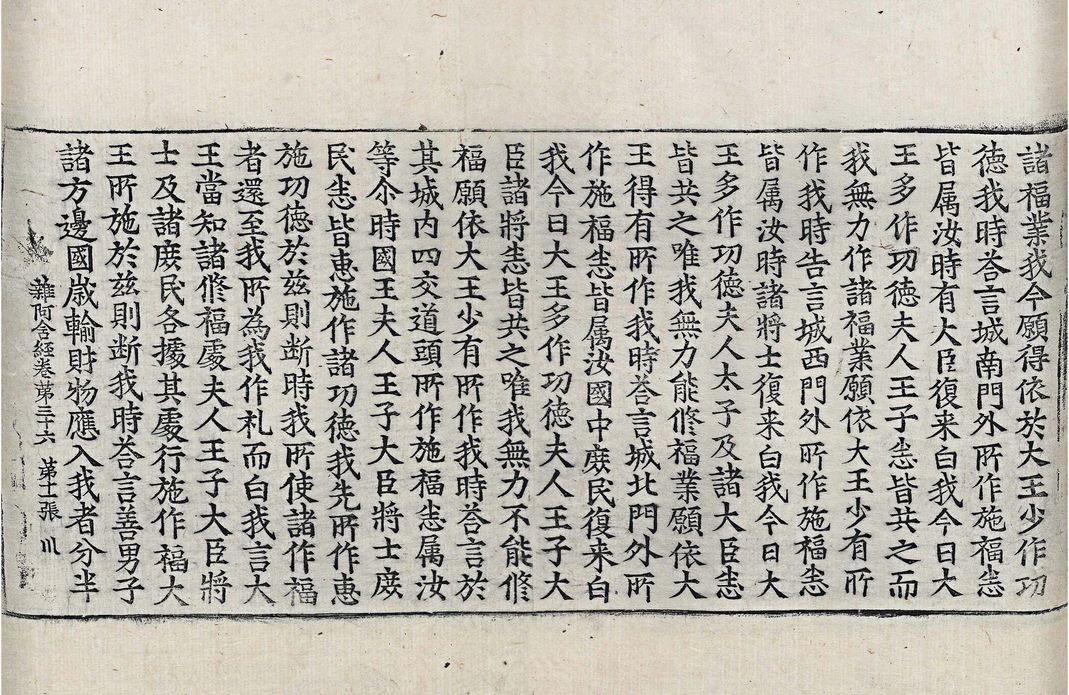 諸福業我今願得依於大王少作功
徳我時荅言城南門外所作施福悉
皆属汝時有大臣復来白我今日大
王多作功徳夫人王子悉皆共之而
我無力作諸福業願依大王少有所
作我時告言城西門外所作施福悉
皆属汝時諸將士復来白我今日大
王多作功徳夫人太子及諸大臣悉
皆共之唯我無力能修福業願依大
王得有所作我時荅言城北門外所
作施福悉皆属汝國中庶民復来白
我今日大王多作功徳夫人王子大
臣諸將悉皆共之唯我無力不能修
福願依大王少有所作我時荅言於
其城内四交道頭所作施福悉属汝
等尒時國王夫人王子大臣將士庶
民悉皆恵施作諸功徳我先所作恵
施功徳於兹則断時我所使諸作福
者還至我所為我作札而白我言大
王當知諸修福處夫人王子大臣將
士及諸庶民各據其處行施作福大
王所施於兹則断我時荅言善男子
諸方邊國歳輸財物應入我者分半
雜阿含経卷第三十六 第十一張 川